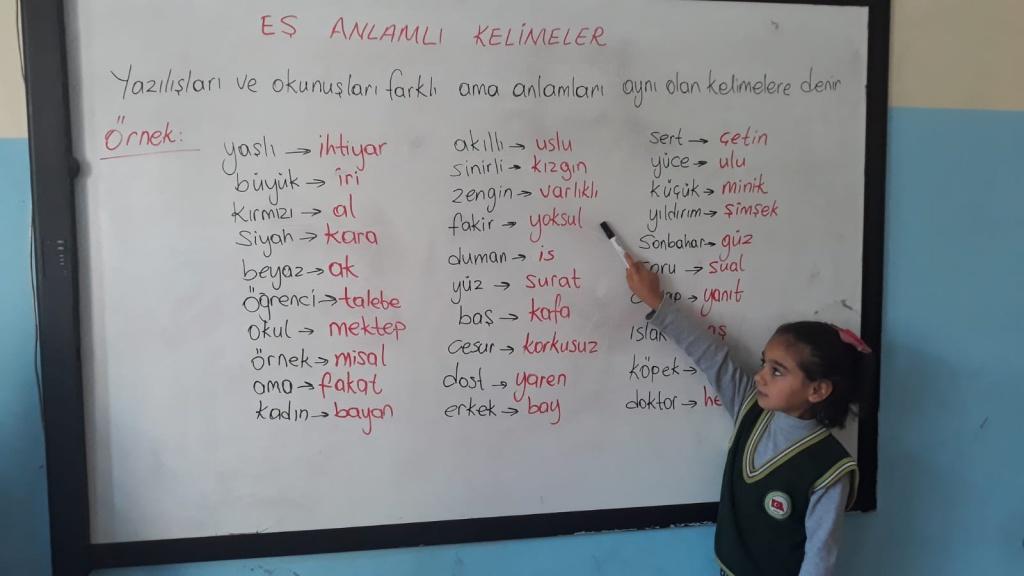 EŞ ANLAMLI KELİMELER
Yazılışları ve okunuşları farklı ama anlamları aynı olan kelimelere denir
Örnek:
yaşlı → ihtiyar
büyük → iri
kırmızı → al
siyah → kara
beyaz → ak
öğrenci → talebe
okul → mektep
örnek → misal
ama → fakat
kadın → bayan
akıllı → uslu
sinirli → kızgın
zengin → varlıklı
fakir → yoksul
duman → is
yüz → surat
baş → kafa
cesur → korkusuz
dost → yaren
erkek → bay
sert → çetin
yüce → ulu
küçük → minik
yıldırım → şimşek
sonbahar → güz
→ sual
→ yanıt
ıslak
köpek →
doktor →